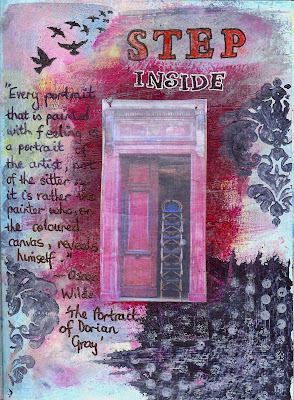 STEP
INSIDE
"Every portrait
that is painted
with feeling is
a portrait of
the artist, not
of the sitter
it is rather the
painter who, on
the coloured
canvas, reveals
himself."
- Oscar
Wilde
'The Portrait
of Dorian
Gray'